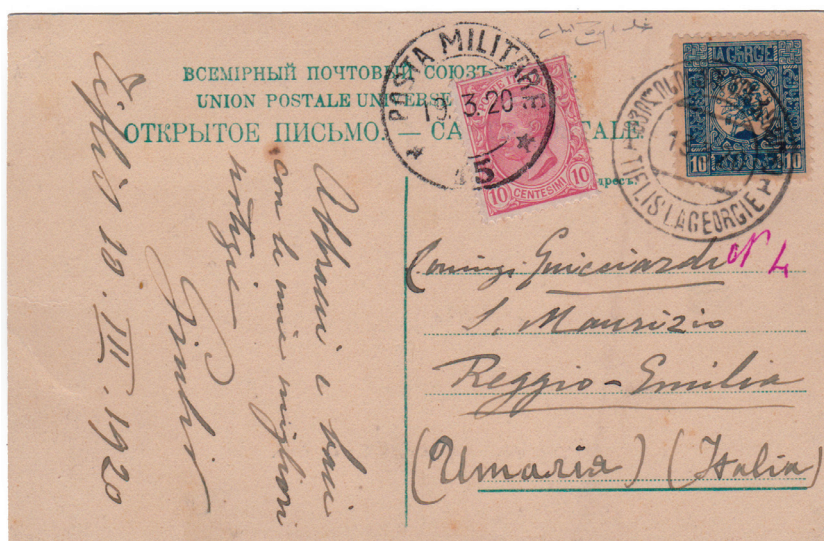 ВСЕМІРНЫЙ ПОЧТОВЫЙ СОЮЗЪ
UNION POSTALE UNIVERSE
ОТКРЫТОЕ ПИСЬМО. — CA TALE
адресъ
POSTA MILITARE
19. 3. 20
POSTE
10 CENTESIMI 10
LA GEORGIE
10 10
TIFLIS LA GEORGIE
Tiflis 20. III. 1920
Abbracci e baci
con le mie migliori
notizie
Giulio
Guicciardi
No 4
S. Maurizio
Reggio-Emilia
(Italia)